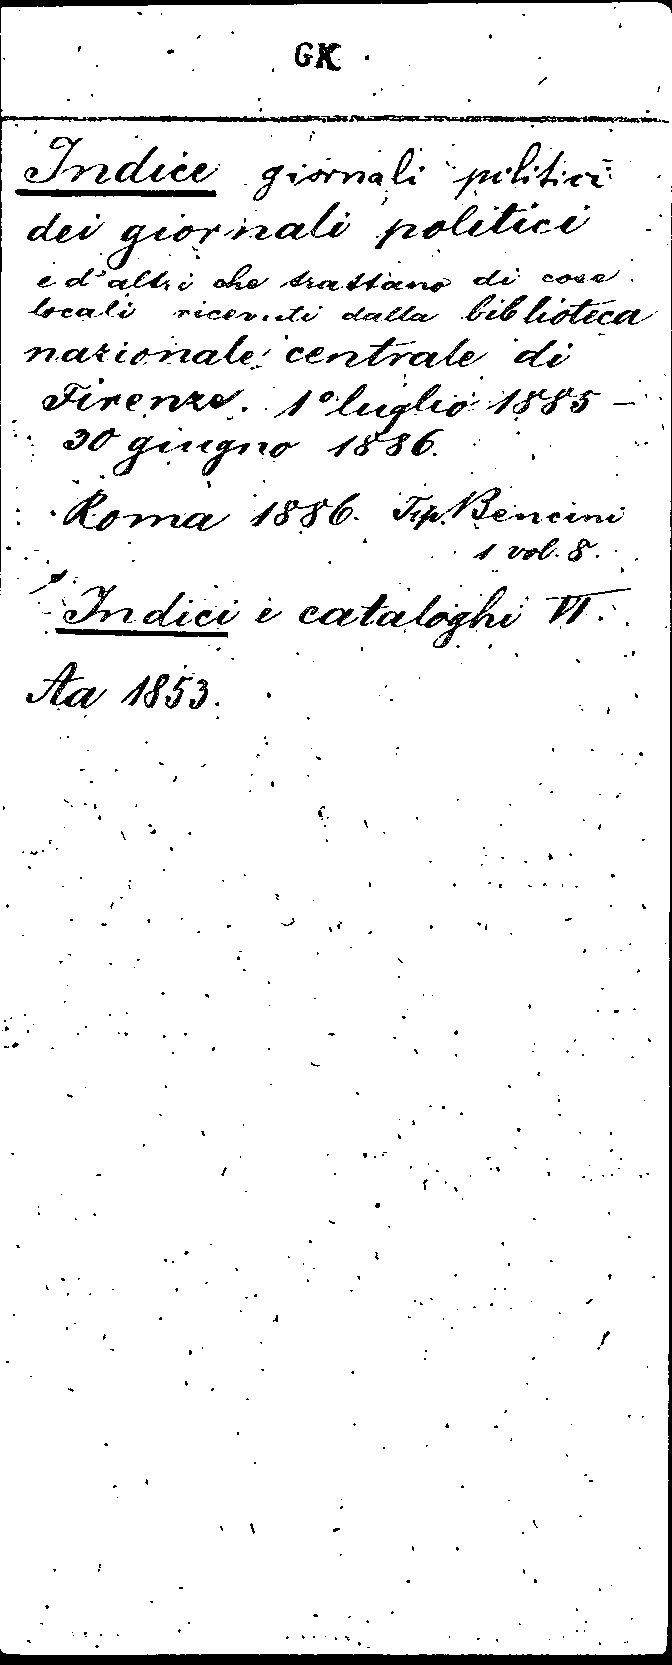 GK
Indice giornali politici
dei giornali politici
e d'altri che trattano di cose
locali ricevuti dalla biblioteca
nazionale centrale di
Firenze. 1º luglio 1885 –
30 giugno 1886.
Roma 1886. Tip. Bencini
1 vol. 8.
Indici e cataloghi VI.
Aa 1853.